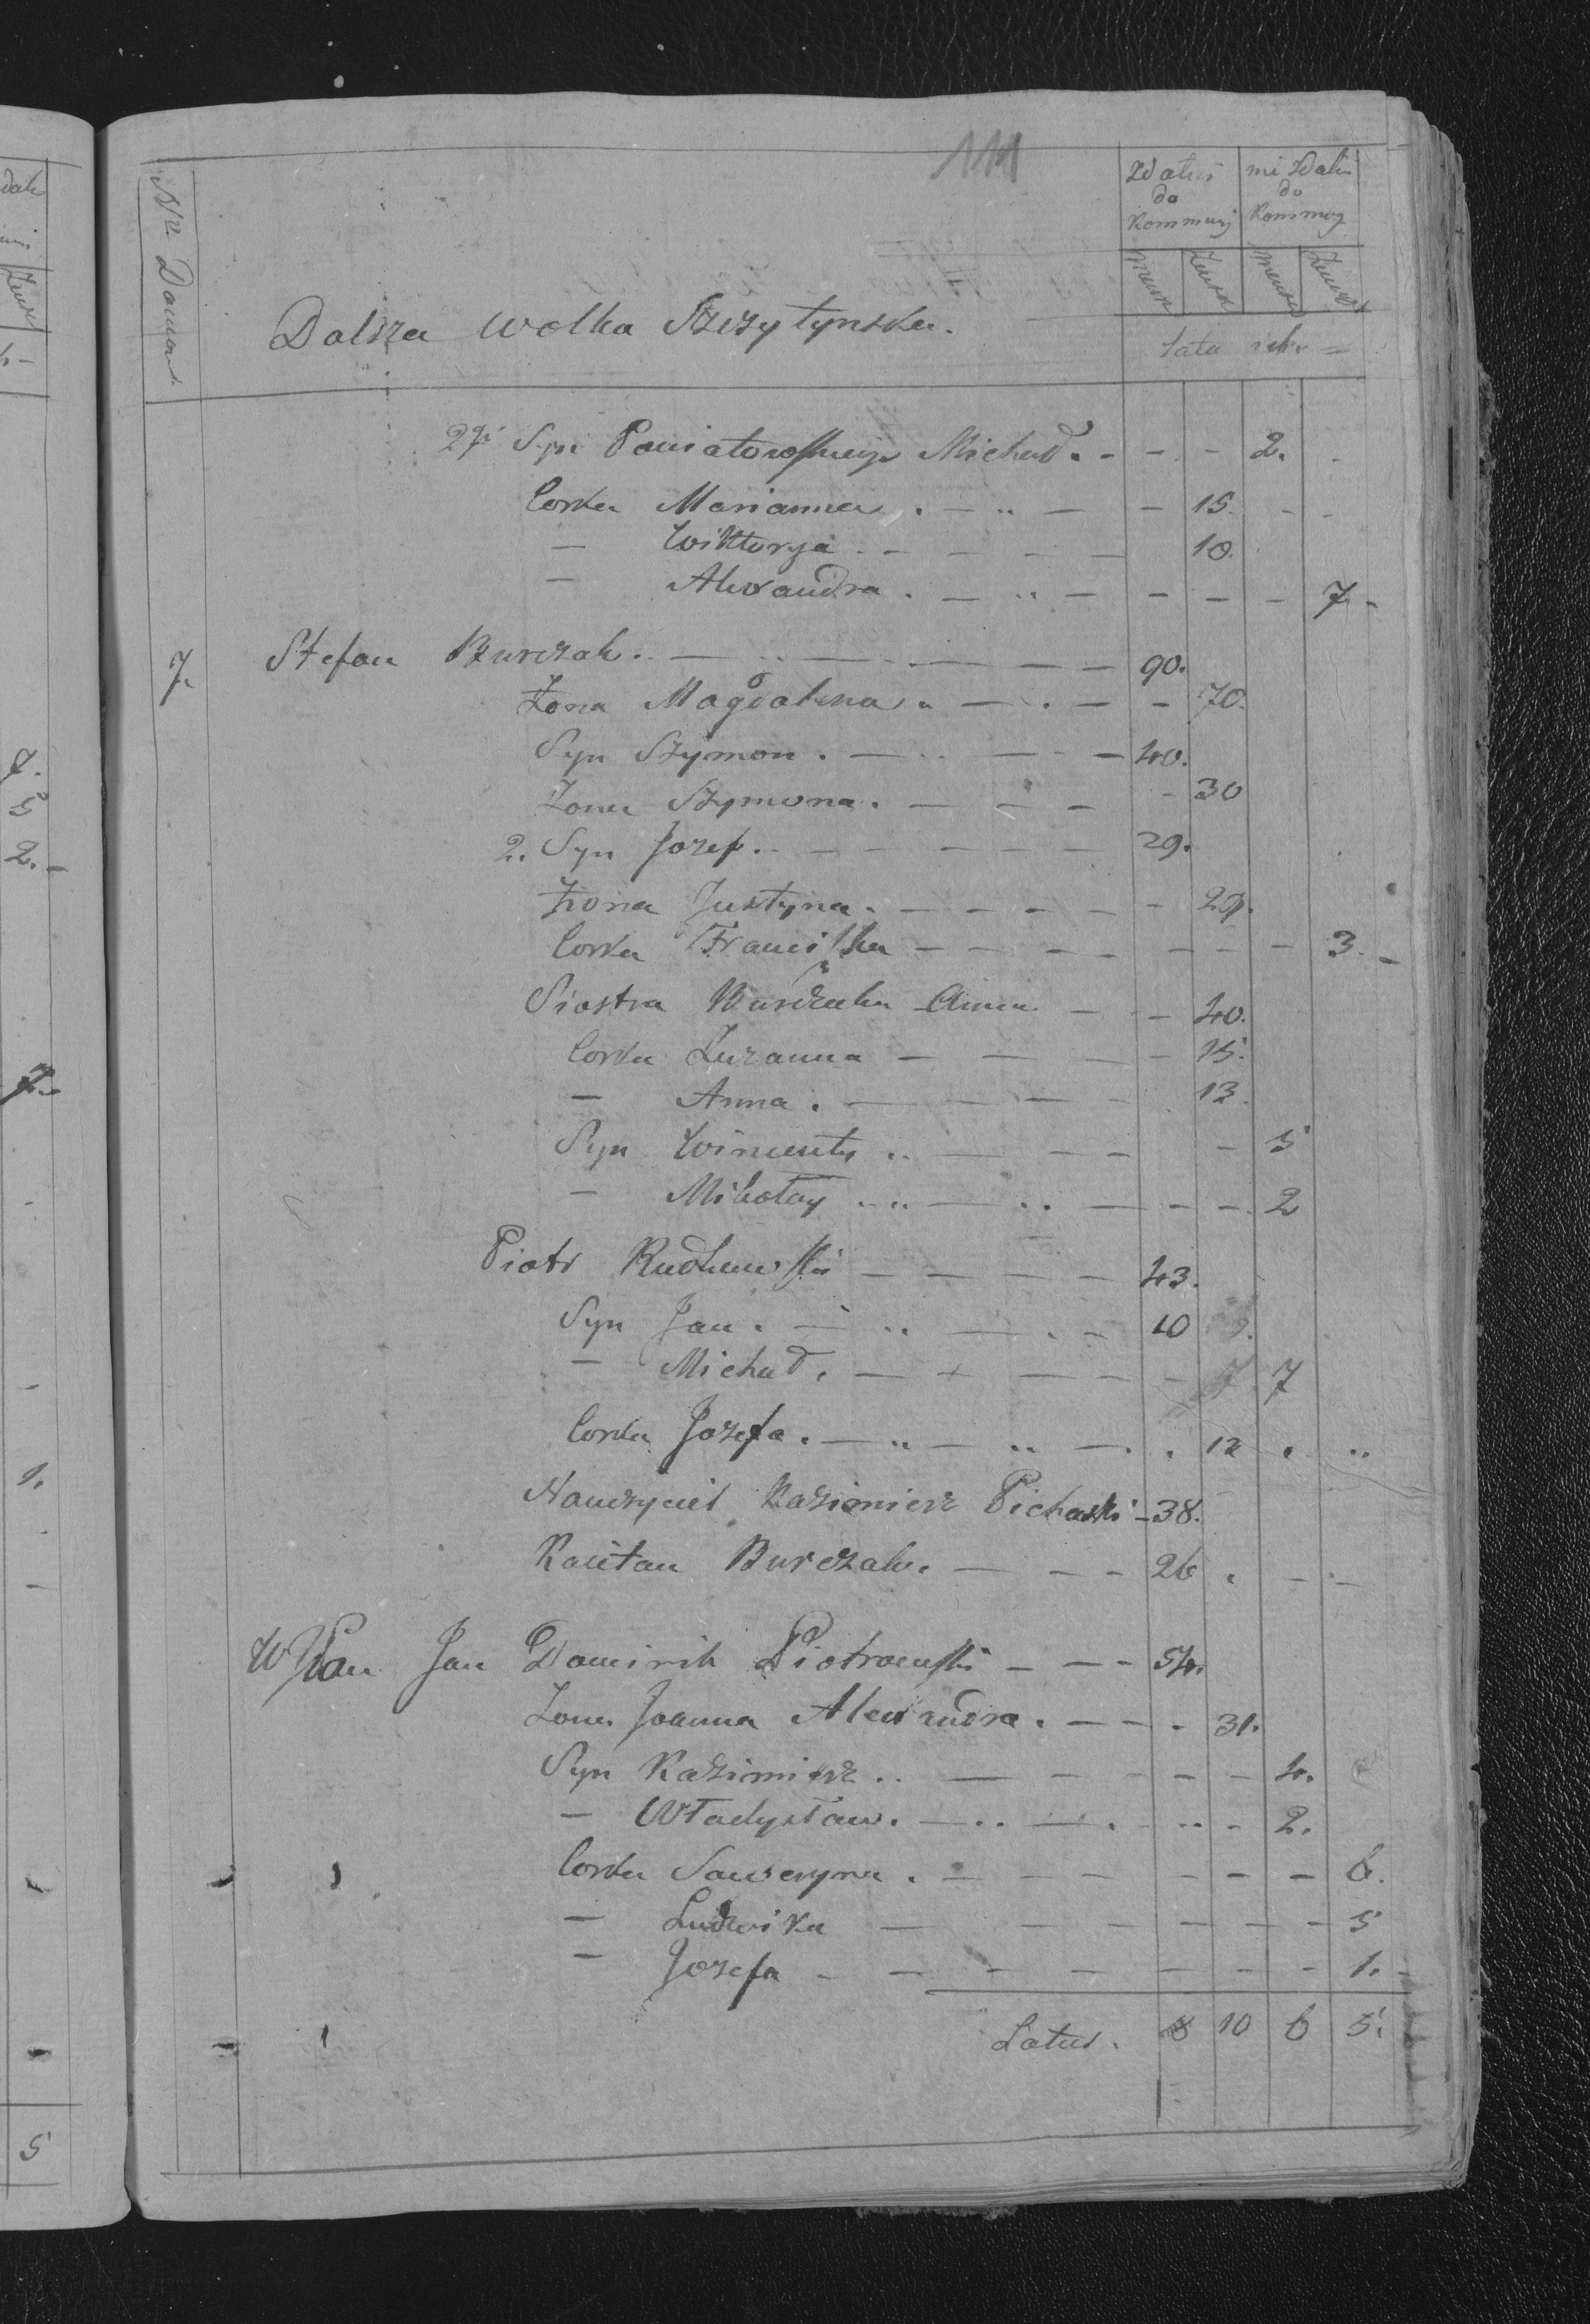 111
Zdatni do Kommunj
nie Zdatni do Kommnj
Nr Domow
męsk Zensk męsk Zensk
Dalsza Wolka Szczytynska.
Lata ich =
2gi Syn Poniatowskiego Michał. - - - 2. -
Corka Marianna . - " - - 15. - -
— Wiktorya . - - - - 10.
— Alexandra . - " - - - - 7 -
7. Stefan Burczak. — — — — 90.
Zona Magdalena . — . — - 70.
Syn Szymon . — — — 40.
Zona Szymona . — — — - 30
2. Syn Jozef . - - - - - - 29.
Zona Justyna . - - - - - - 29.
Corka Franciszka - - - - - - - - 3. -
Siostra Burczaka Anna - - - 40.
Corka Zuzanna — — — - 15.
— Anna . — — — - 13.
Syn Wincenty .. — - - - 5
— Mikołay .. " — .. — - - 2
Piotr Rudkowski — — — — 43.
Syn Jan . — .. — . - 10
— Michał . — — — - - 7
Corka Jozefa . — " — .. — . . 12 . ..
Nauczyciel Kazimierz Pichaski - 38.
Kaietan Burczak . — - - 26 . - -
W Pan Jan Dominik Piotrowski — - - 54.
Zona Joanna Alexandra . — - . 31.
Syn Kazimierz .. — — - - - 4.
— Władysław . — .. — . .. - 2.
Corka Saweryna . — — — - - - 6.
— Ludwika — — — - - - 5
— Jozefa - — - — - - - 1. -
Latus . 8 10 6 5.